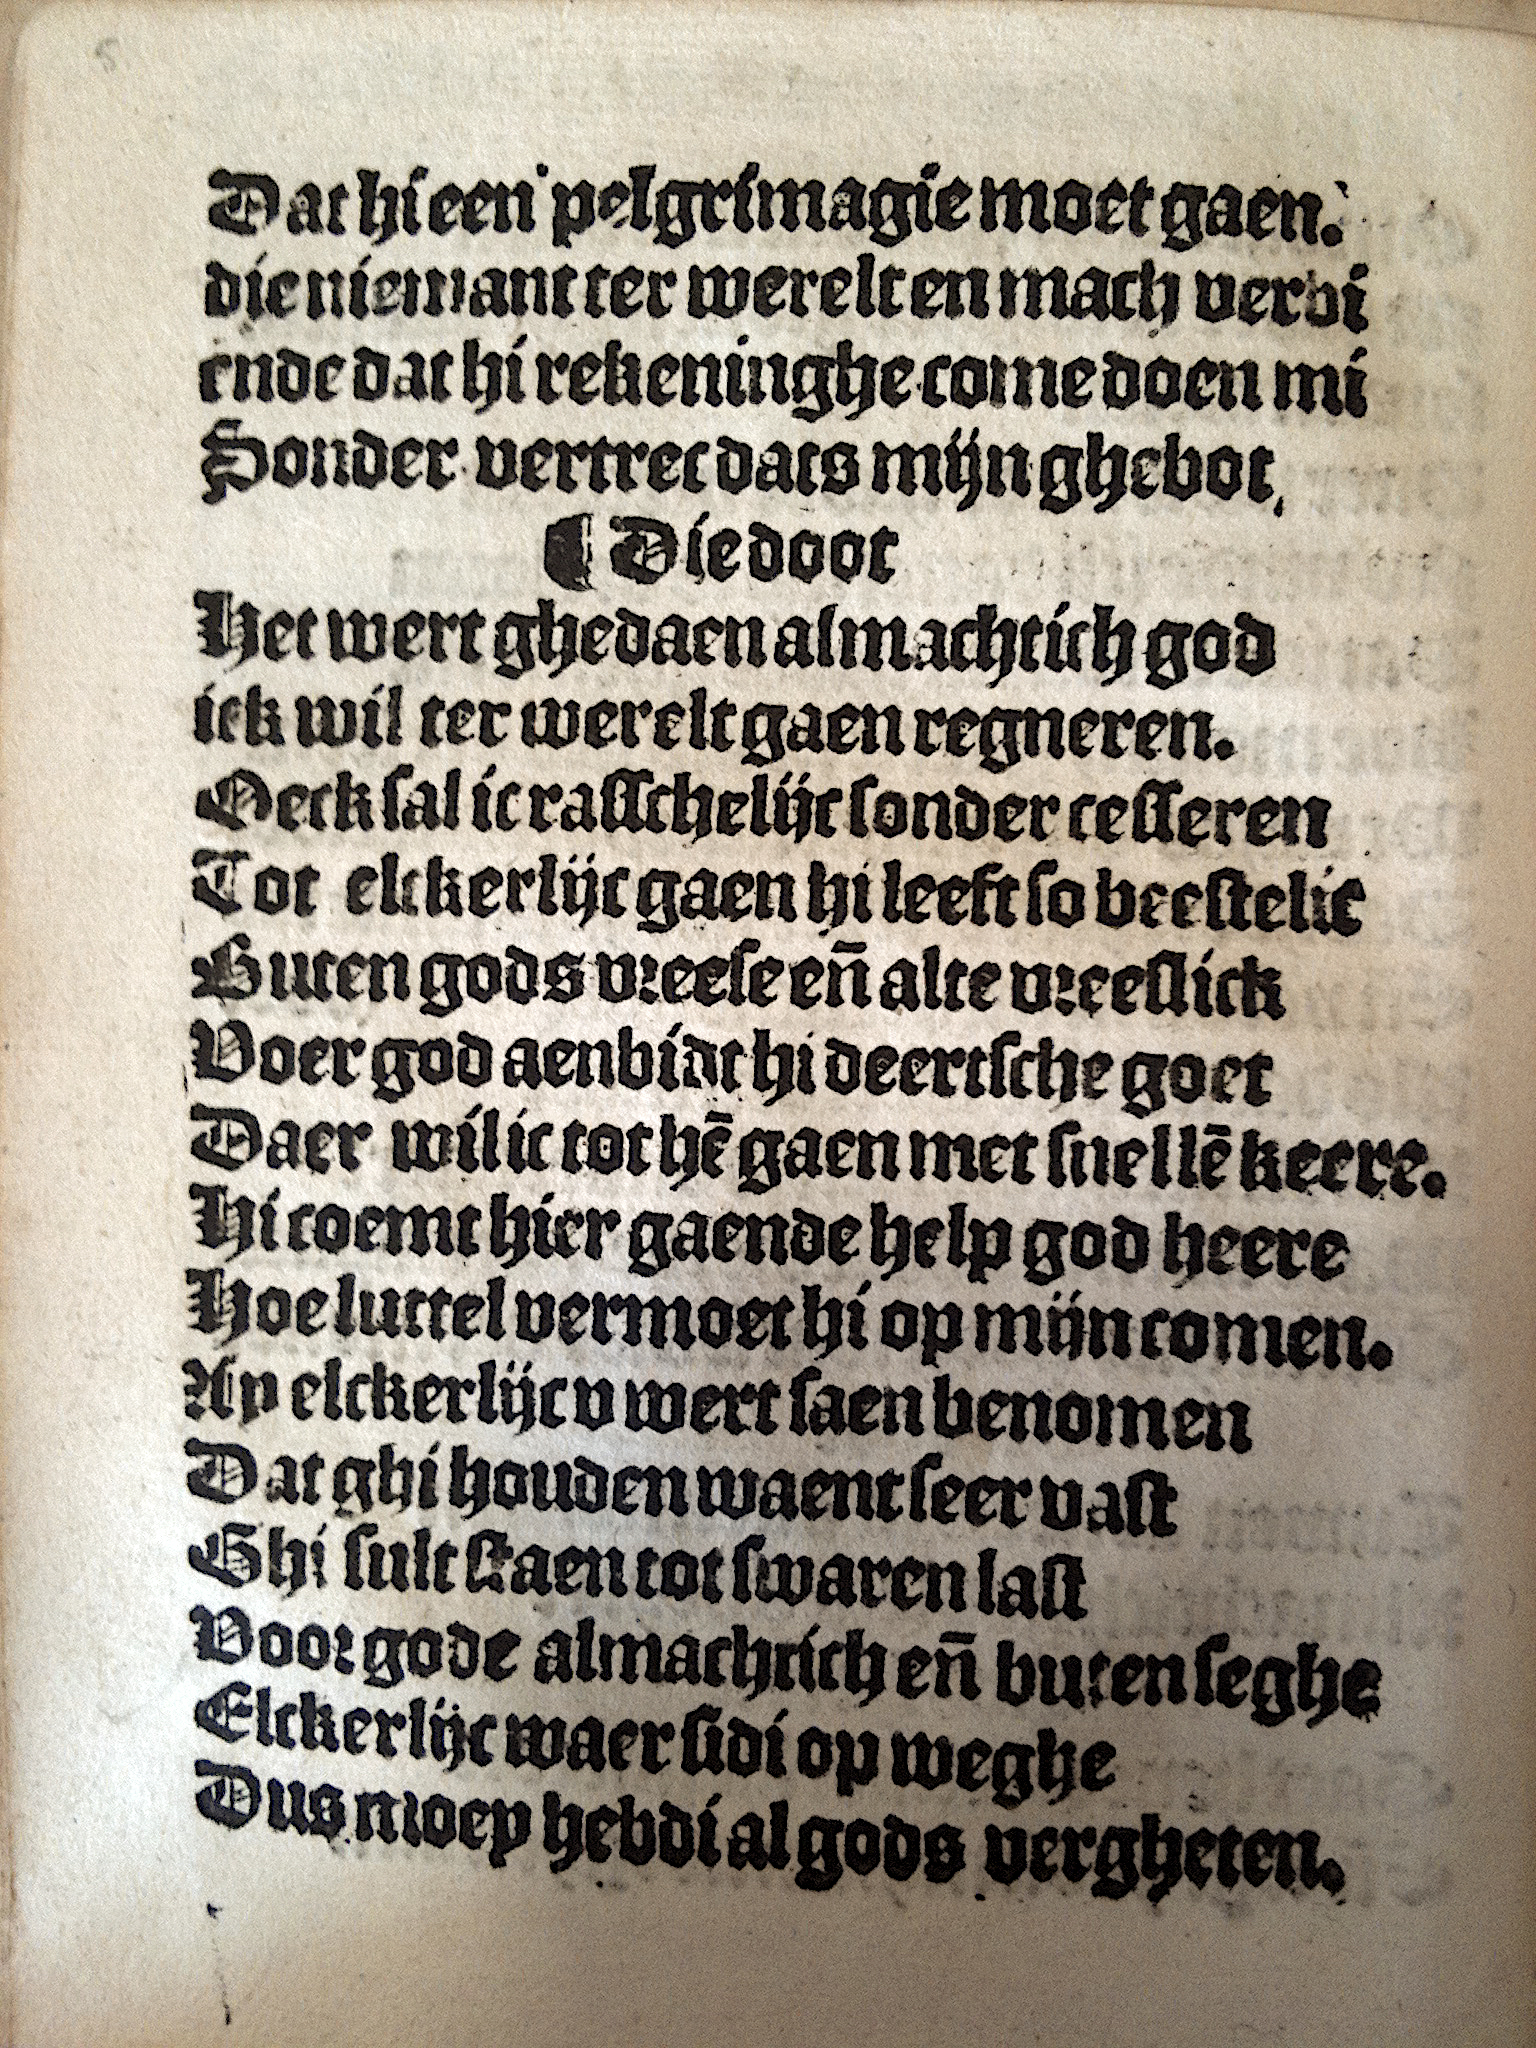 Dat hi een pelgrimagie moet gaen.
die niemant ter werelt en mach verbi
ende dat hi rekeninghe come doen mi
Sonder vertrec dats mijn ghebot,
¶ Die doot
Het wert ghedaen almachtich god
ick wil ter werelt gaen regneren.
Oeck sal ic rasschelijc sonder cesseren
Tot elckerlijc gaen hi leeft so beestelic
Buten gods vreese en̄ alte vreeslick
Voer god aenbidt hi deertsche goet
Daer wil ic tot hē gaen met snellē keere.
Hi coemt hier gaende help god heere
Hoe luttel vermoet hi op mijn comen.
Ay elckerlijc v wert saen benomen
Dat ghi houden waent seer vast
Ghi sult staen tot swaren last
Voor gode almachtich en̄ buten seghe
Elckerlijc waer sidi op weghe
Dus moey hebdi al gods vergheten.